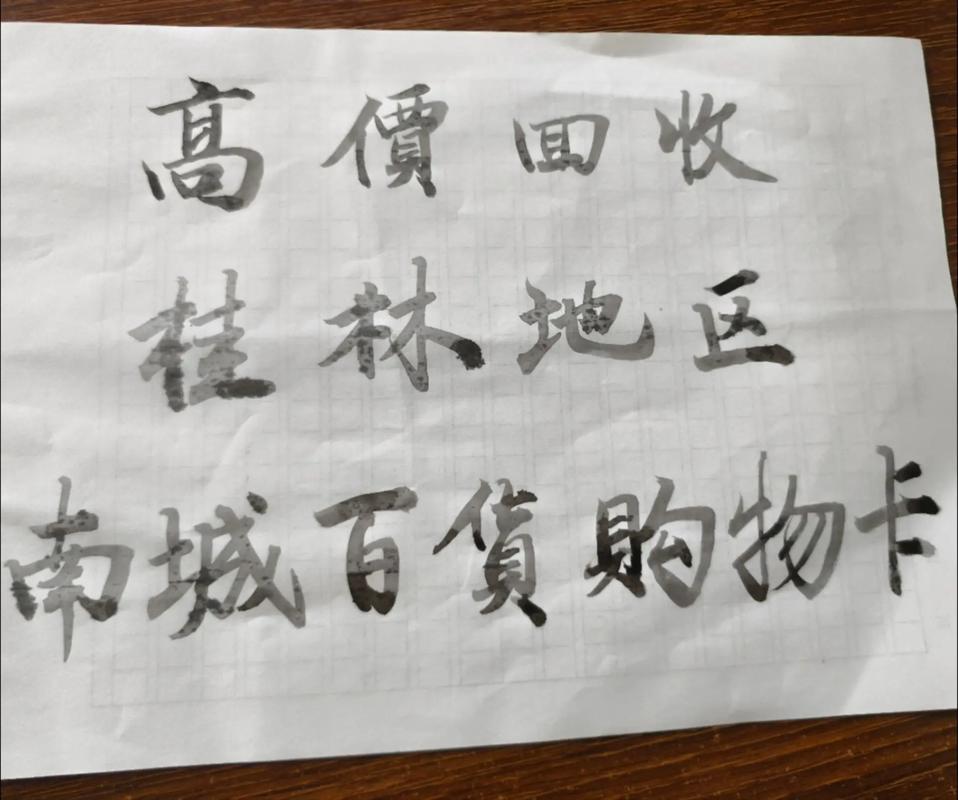 高價回收
桂林地区
南城百貨購物卡